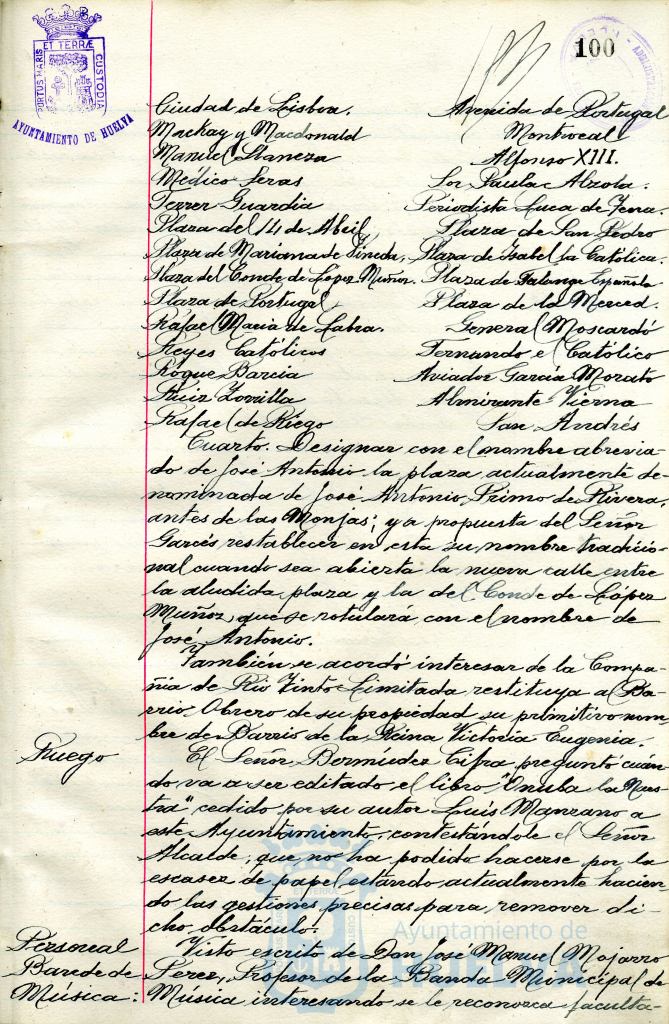 PORTUS MARIS
ET TERRÆ
CUSTODIA
AYUNTAMIENTO DE HUELVA
100
Ciudad de Lisboa. Avenida de Portugal
Mackay y Macdonald Montrocal
Manuel Llaneza Alfonso XIII.
Médico Seras Sor Paula Alzola.
Ferrer Guardia Periodista Luca de Tena.
Plaza del 14 de Abril, Plaza de San Pedro
Plaza de Mariana de Pineda, Plaza de Isabel la Católica.
Plaza del Conde de López Muñoz. Plaza de Falange Española
Plaza de Portugal, Plaza de la Merced.
Rafael María de Labra. General Moscardó
Reyes Católicos Fernando el Católico
Roque Barcia Aviador García Morato
Ruiz Zorrilla Almirante Vierna
Rafael de Riego San Andrés
Cuarto. Designar con el nombre abrevia-
do de José Antonio la plaza actualmente de-
nominada de José Antonio Primo de Rivera,
antes de las Monjas; y a propuesta del Señor
Garcés restablecer en esta su nombre tradicio-
nal cuando sea abierta la nueva calle entre
la aludida plaza y la del Conde de López
Muñoz, que se rotulará con el nombre de
José Antonio.
También se acordó interesar de la Compa-
ñia de Rio Tinto Limitada restituya al Ba-
rrio Obrero de su propiedad su primitivo nom-
bre de Barrio de la Reina Victoria Eugenia.
Ruego El Señor Bermúdez Cifra preguntó cuán-
do va a ser editado el libro "Onuba la Nues-
tra" cedido por su autor Luis Manzano a
este Ayuntamiento, contestándole el Señor
Alcalde, que no ha podido hacerse por la
escasez de papel, estando actualmente hacien
do las gestiones precisas para remover di-
cho obstáculo.
Personal Visto escrito de Don José Manuel Mojarro
Banda de Perez, Profesor de la Banda Municipal de
Música: Música interesando se le reconozca faculta-
Ayuntamiento de
HUELVA